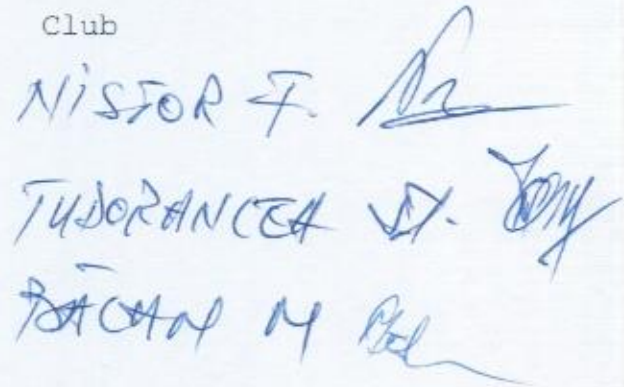 Club
NISTOR F.
TUDORANCEA ȘT.
BĂCAN M